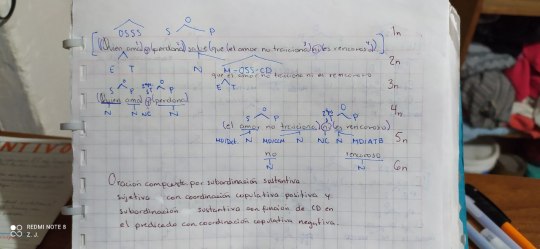 OSSS S O P 1n
[(Quien ama) y (perdona) sabe (que (el amor no traiciona) (ni) (es rencoroso))]
2n
E T N M-OSS-CD
que el amor no traiciona ni es rencoroso
3n
S O P E T
(Quien ama) y (perdona) 4n
N N NC N S O P O P
(el amor no traiciona) (ni) (es rencoroso) 5n
MDIDet. N MDICCN N NC N MDIATB
no rencoroso 6n
N N
Oración compuesta por subordinación sustantiva
sujetiva con coordinación copulativa positiva y
subordinación sustantiva con función de CD en
el predicado con coordinación copulativa negativa.
TIVO
REDMI NOTE 8
Z. J.